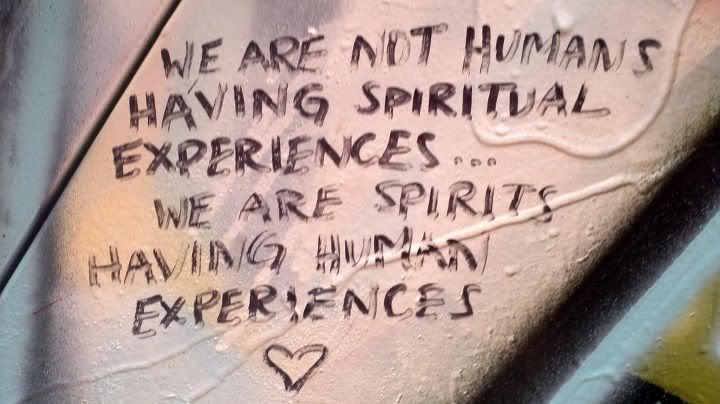 WE ARE NOT HUMANS
HAVING SPIRITUAL
EXPERIENCES...
WE ARE SPIRITS
HAVING HUMAN
EXPERIENCES